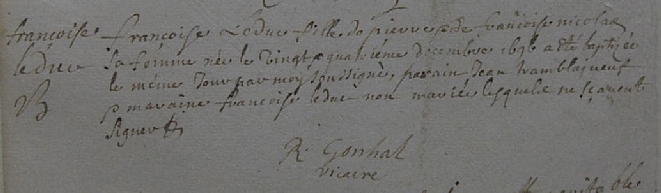 françoise
leduc
B
françoise Leduc fille de pierre & de françoise nicolas
sa femme née le vingt quatrieme decembre 1696 a été baptizée
le même jour par moy soussigné, parain Jean
& maraine françoise leduc non mariée lesquels ne sçavent
signer
R Gonhal
vicaire